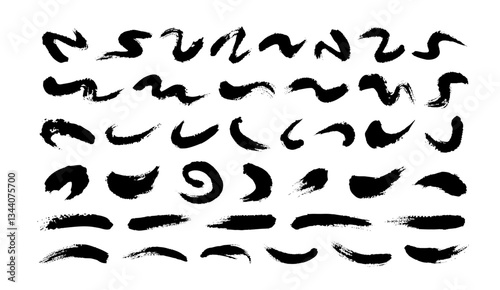 Adobe Stock | #1344075700